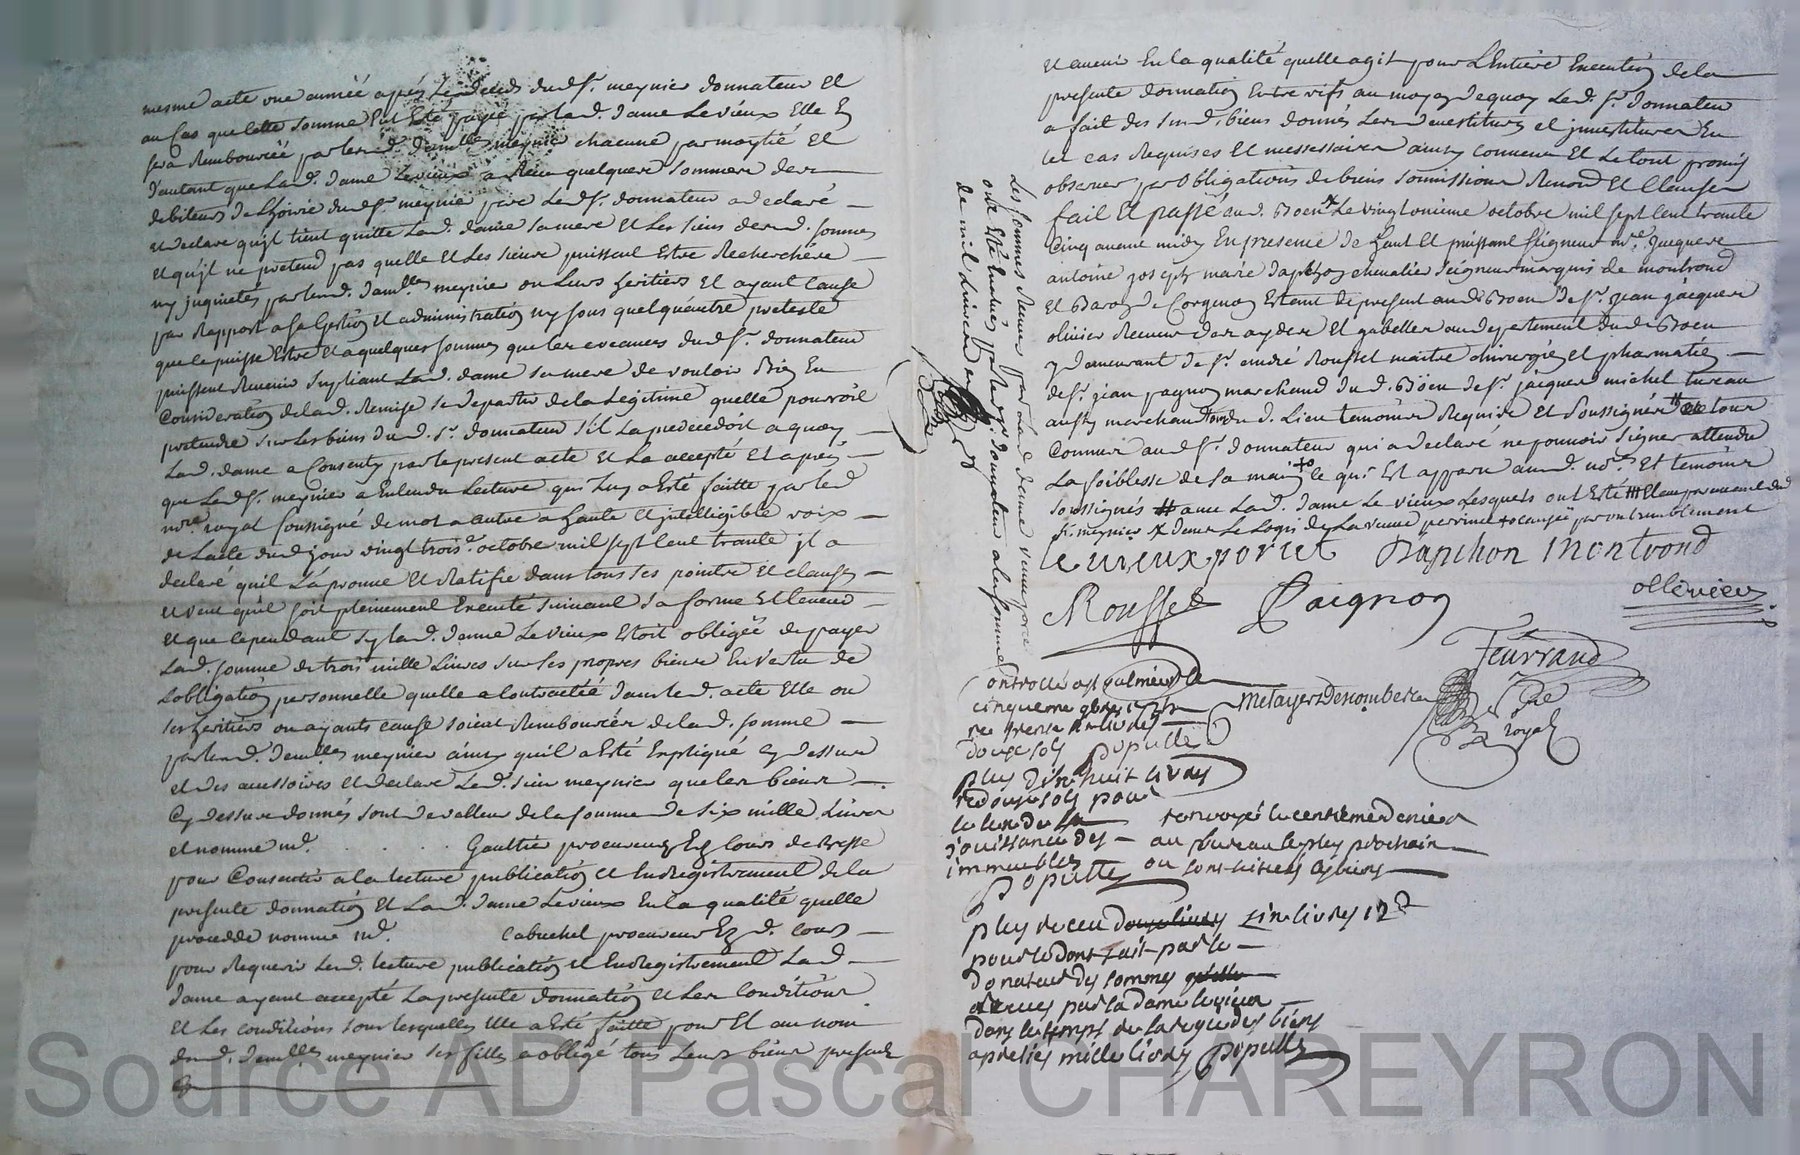 mesme acte une année après le deceds dud. sr. meynier donnateur et
au cas que cette somme eut esté payée par lad. dame Levieux elle en
sera Rembourcée par lesd. demlles meynier chacune par moytié et
d'autant que Lad. dame Levieux a Receu quelques sommes des
debiteurs de L'hoirie dud. sr. meynier père Led. sr. donnateur a declaré
et declare qu'jl tient quitte Lad. dame sa mere et Les siens desd. sommes
et qu'jl ne pretend pas quelle et Les siens puissent Estre Recherchées
ny jnquietés par lesd. demlles meynier ou Leurs heritiers et ayant cause
par Rapport a sa Gestion et administration ny sous quelqu'autre pretexte
que ce puisse Estre et a quelques sommes que les creances dud. sr. donnateur
puissent Revenir supliant Lad. dame sa mere de vouloir Bien En
Consideration de lad. Remise se departir de la Legitime quelle pourroit
pretendre sur les biens dud. sr. donnateur s'il La predecedoit a quoy
Lad. dame a Consenty par le present acte et La accepté et après
que Led. sr. meynier a Entendu Lecture qui Luy a Esté faitte par led
nore. royal soussigné de mot a autre a haute et jntelligible voix
de L'acte dud. jour vingt trois. octobre mil sept cent trante jl a
declaré quil L'aprouve et Ratifie dans tous ses pointes et clauses
et veut qu'il soit pleinement Executé suivant sa forme et teneur
et que cependant sy lad. dame Levieux Estoit obligée de payer
Lad. somme de trois mille Livres sur ses propres biens En Vertu de
Lobligation personnelle quelle a Contractée dans led. acte Elle ou
ses heritiers ou ayants cause soient Rembourcés de lad. somme
par lesd. demlles meynier ainsy quil a Esté Expliqué cy dessus
et des accessoires et declare Led. sieur meynier que les biens
Cy dessus donnés sont de valleur de la somme de six mille Livres
et nomme me. . . . . Gaultié procureur Ez Cours de Bresse
pour Consentir a la Lecture publication et Enregistrement de la
presente donnation et Lad. dame Levieux En la qualité quelle
procedde nomme me. Cabuchet procureur Ez d. Cours
pour Requerir Lesd. lecture publication et Enregistrement Lad.
dame ayant accepté La presente donnation et Les Conditions
et Les conditions sous lesquelles Elle a Esté faitte pour Et au nom
desd. demlles meynier ses filles a obligé tous Leurs biens presents
Et avenir En la qualité quelle agit pour L'Entiere Execution de la
presente donnation Entre vifs au moyen de quoy Led. sr. donnateur
a fait des susd. biens donnés les devestitures et jnvestitures En
tel cas Requises et nessessaires ainsy convenu Et Le tout promis
observer par obligations de biens soumissions Renond et Clauses
fait Et passé aud. Boen x Le vingt onzieme octobre mil sept cent trante
cinq avant midy En presence de haut et puissant seigneur mre. Jacques
antoine joseph marie dapchon chevalier seigneur marquis de montrond
et Baron de Corgenon Estant de present aud. Boen de sr. jean jacques
olivier Receveur des aydes et gabelles au departement dud. Boen
y demeurant de sr. andré Roussel maitre chirurgien et pharmatien
de sr. jean pagnon marchand dud. Boen de sr. jacques michel
aussy marchand dud. Lieu temoins Requis et soussignés
Connus aud. sr. donnateur qui a declaré ne pouvoir signer attendu
La foiblesse de sa main + le qui Est apparu aud. nore. Et temoins
soussignés # avec Lad. dame Le vieux Lesquels ont Esté
sr. meynier x dans Le Logis de La veuve perrine + causée par un tremblement
Levieux poriet Dapchon Montrond
Roussel Paignon ollivier
Feurrand
Metayer Desnombres
Nre
royal
Les sommes Reçues par lad dame veuve
ont Esté
de mil Livres
Controllé a
cinquieme 9bre 1735
Re trente livres
douze sols Poputte
plus dix huit livres
et douze sols pour
jouissance des
immeubles
Poputte
renvoyé le centieme denier
au bureau le plus prochain
ou sont situés les biens
plus receu douze livres six livres 12 s
pour le dont fait par le
donateur des sommes
receues par la dame levieux
dans le temps de la regie des biens
apretiés mille livres Poputte
Source AD Pascal CHAREYRON